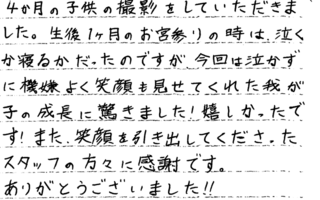 4か月の子供の撮影をしていただきま
した。生後1ヶ月のお宮参りの時は、泣く
か寝るかだったのですが、今回は泣かず
に機嫌よく笑顔も見せてくれた我が
子の成長に驚きました!嬉しかったで
す!また、笑顔を引き出してくださった
スタッフの方々に感謝です。
ありがとうございました!!